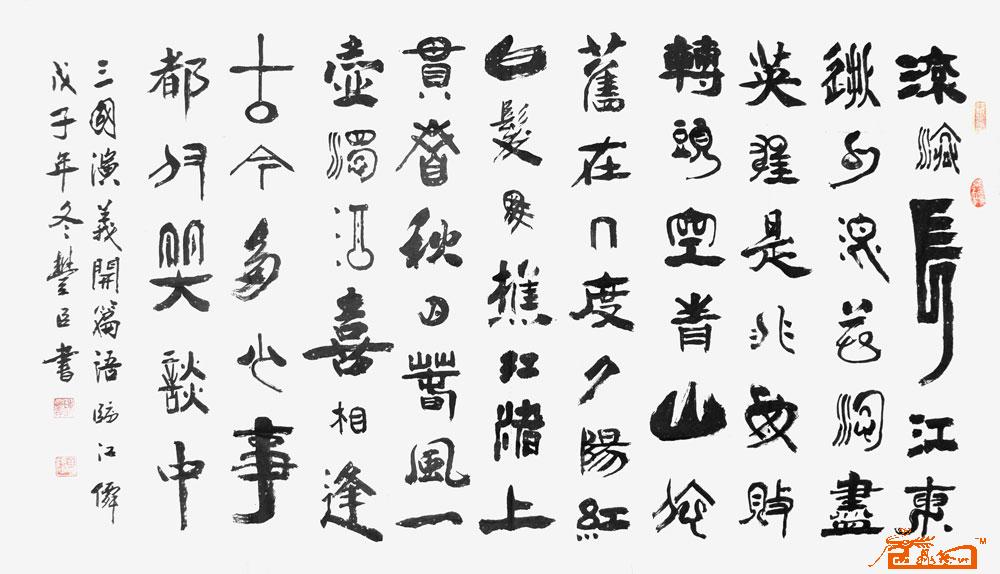 滚滚長江東
逝水浪花淘盡
英雄是非成敗
轉頭空青山依
舊在几度夕陽紅
白髮漁樵江渚上
貫看秋月春風一
壺濁酒喜相逢
古今多少事
都付笑談中
三國演義開篇語臨江僊
戊子年冬豐臣書